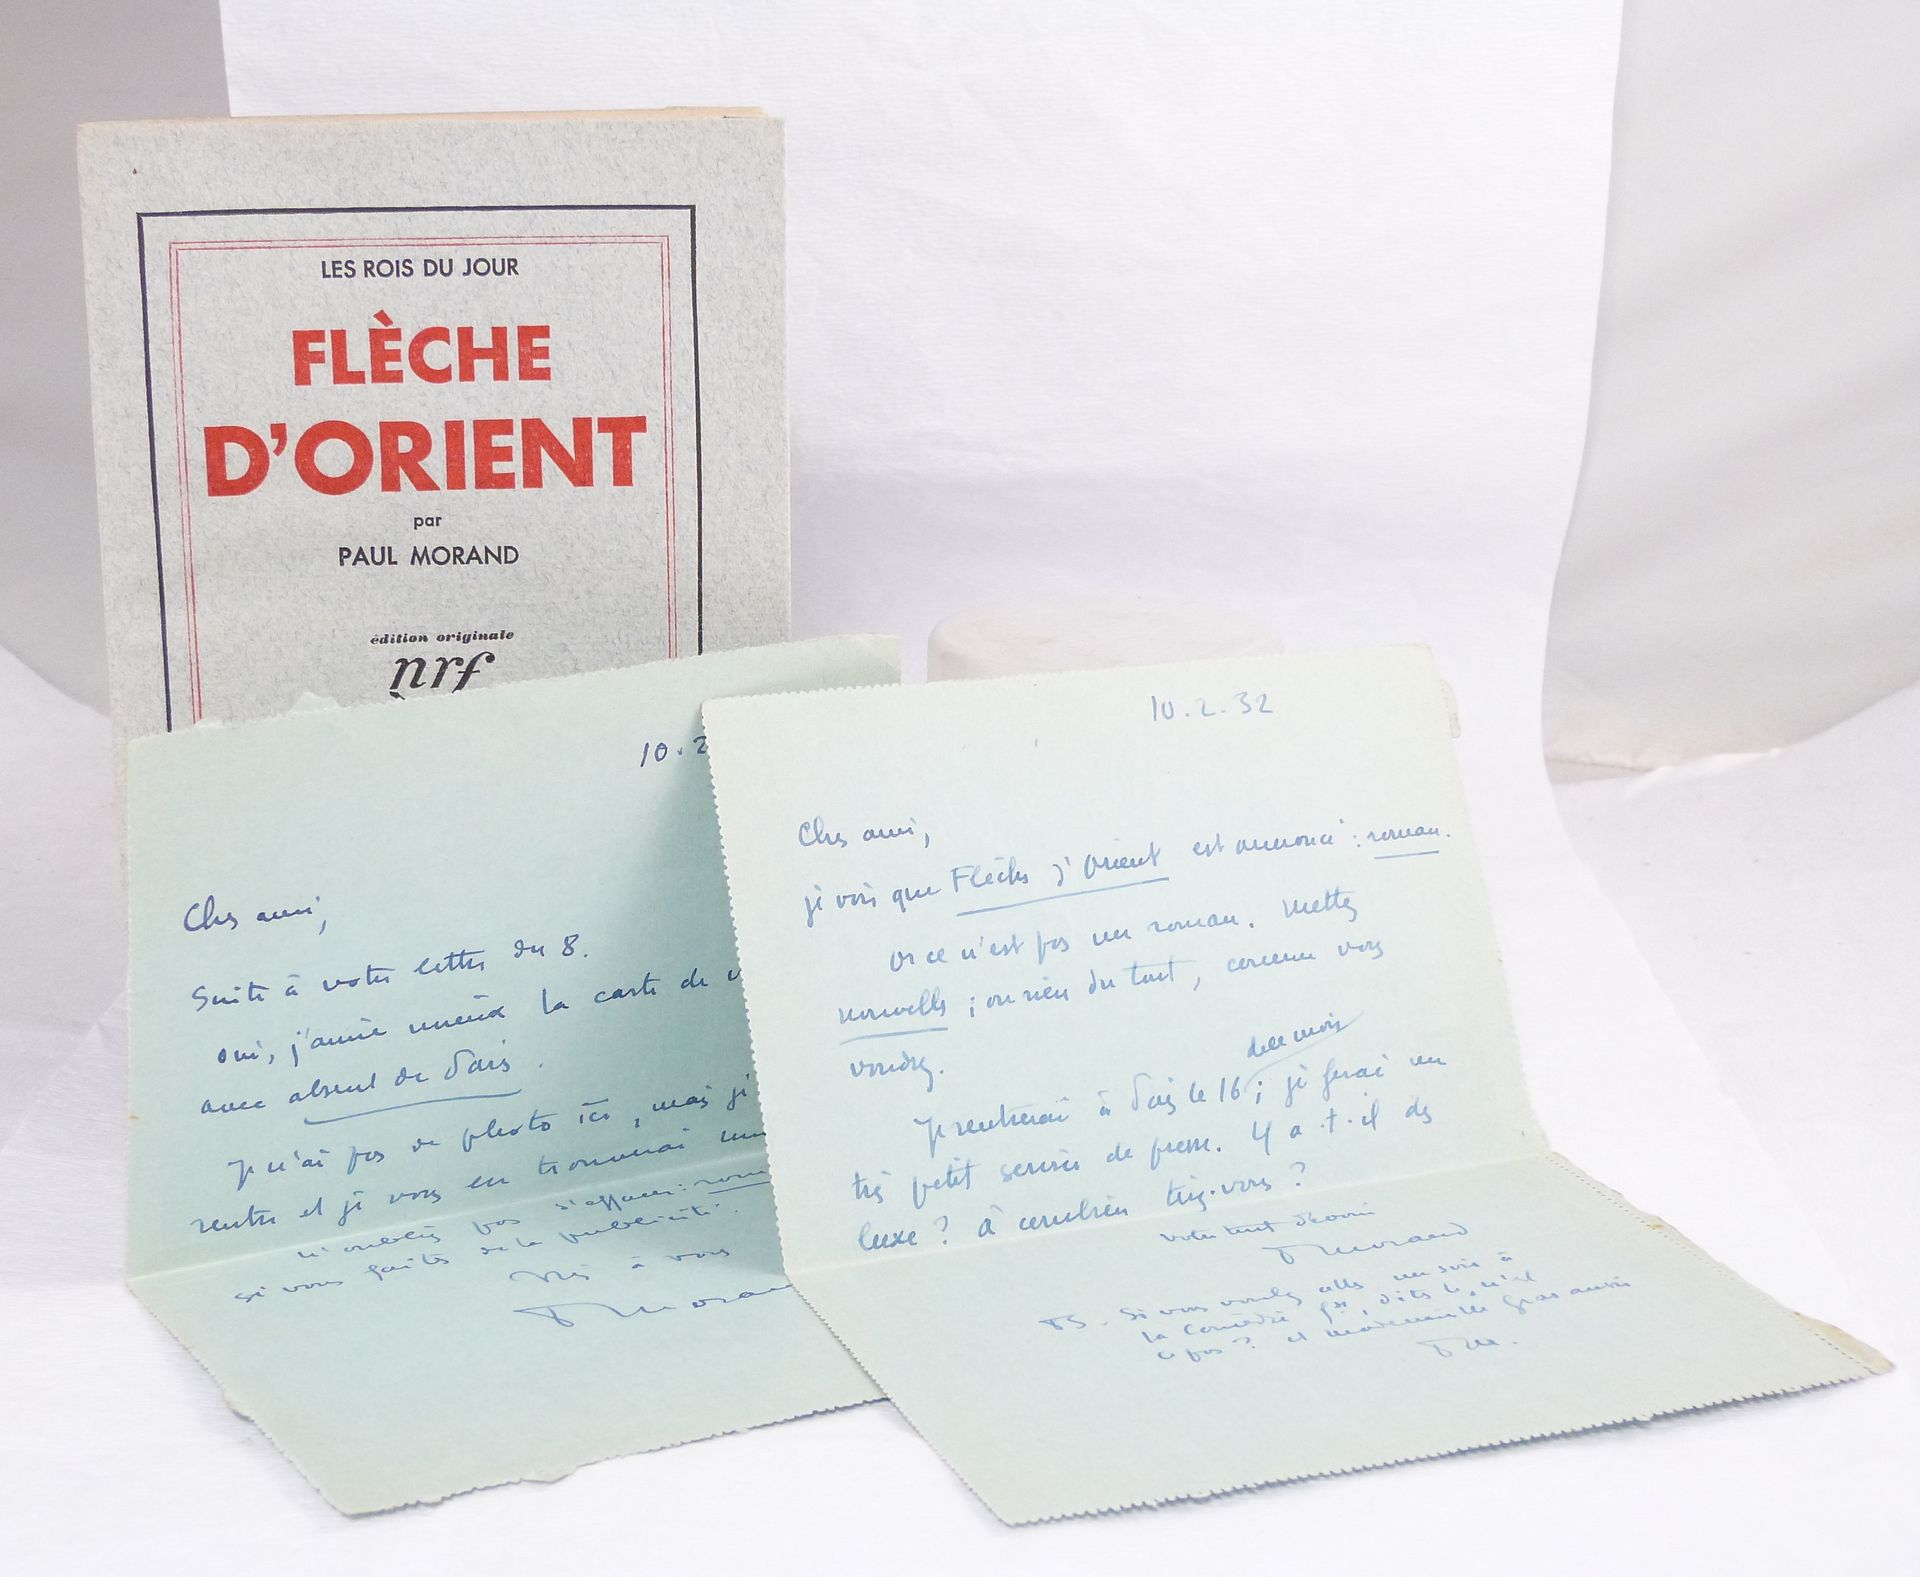 LES ROIS DU JOUR
FLÈCHE
D'ORIENT
par
PAUL MORAND
édition originale
nrf
10.2
Cher ami,
Suite à votre lettre du 8.
oui, j'aime mieux la carte de
avec absent de Paris.
Je n'ai pas de photo ici, mais je
rentre et je vous en trouverai
n'oubliez pas d'effacer : roman
si vous faites de la publicité.
à vous
P Morand
10.2.32
Cher ami,
je vois que Flèche d'Orient est annoncé : roman.
Or ce n'est pas un roman. Mettez
nouvelle ; ou rien du tout, comme vous
voudrez.
de ce mois
Je rentrerai à Paris le 16 ; je ferai un
très petit service de presse. Y a-t-il des
luxe ? à combien tirez-vous ?
Votre tout dévoué
P Morand
PS. Si vous voulez aller un soir à
la Comédie fse, dites le, n'est
ce pas ? et mademoiselle Gras aussi
PM.